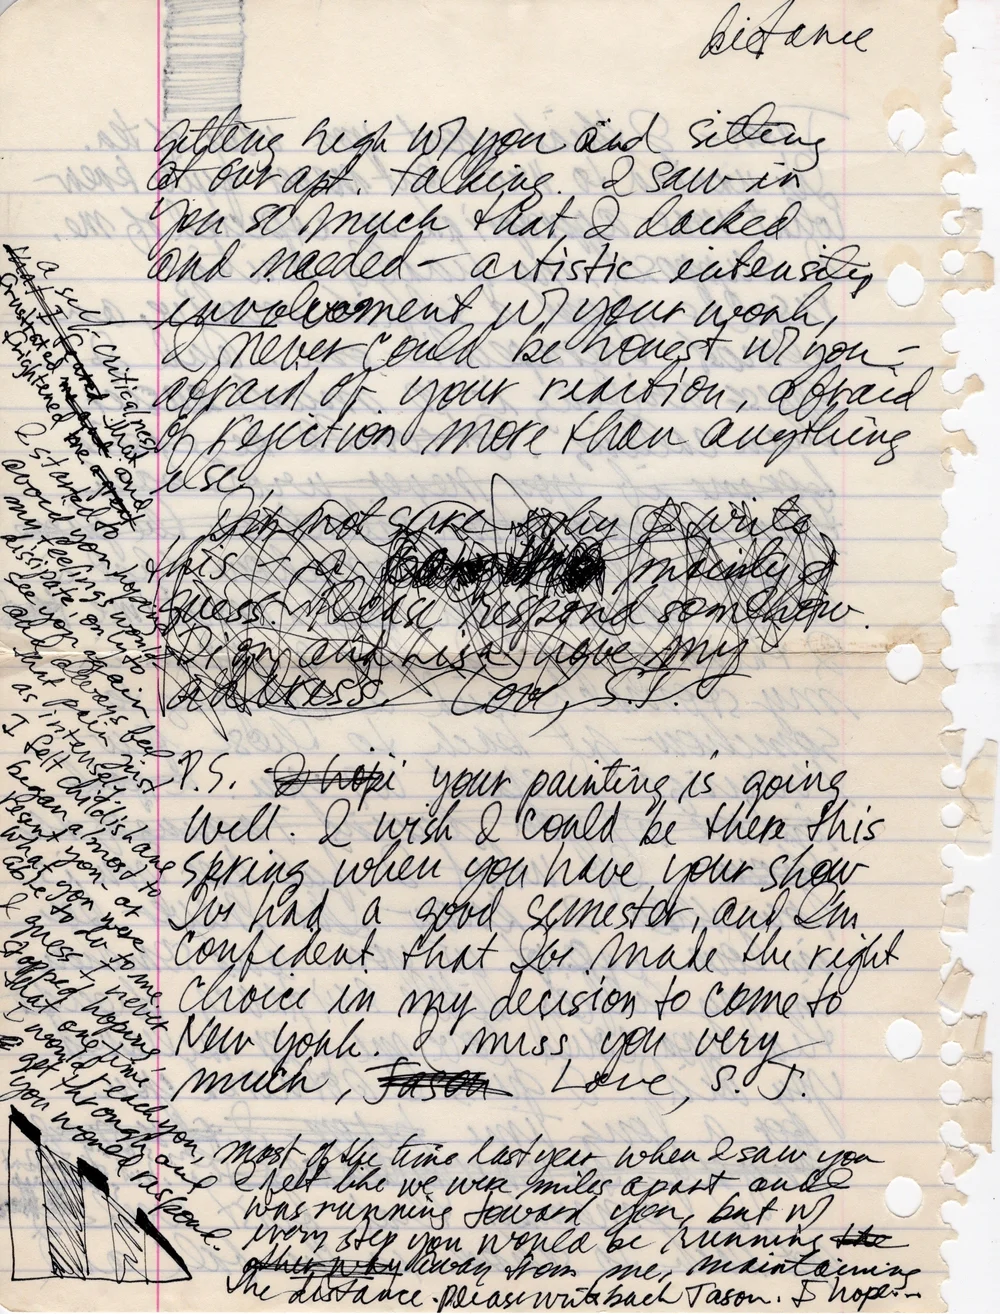 distance
getting high w/ you and sitting
at our apt. talking. I saw in
you so much that I lacked
and needed – artistic intensity,
involvement w/ your work,
I never could be honest w/ you –
afraid of your reaction, afraid
of rejection more than anything
else.
I'm not sure why I write
this – a mainly I
guess. Please respond somehow.
and Lisa have my
address. Love, S.J.
P.S. I hope your painting is going
well. I wish I could be there this
spring when you have your show
I've had a good semester, and I'm
confident that I've made the right
choice in my decision to come to
New York. I miss you very
much, Jason Love, S.J.
most of the time last year when I saw you
I felt like we were miles apart and I
was running toward you, but w/
every step you would be running the
other way away from me, maintaining
the distance. please write back Jason. I hope--
a self-critical, most
that I
frustrated me and
frightened me a great
I started to
avoid you hoping
my feelings would
dissipate, only to
see you again
and always feel
that pain just
as intensely.
I felt childish and
began almost to
resent you – at
what you were
able to do to me.
I guess I never
stopped hoping,
that one time
I would reach you,
get through and
you would respond.